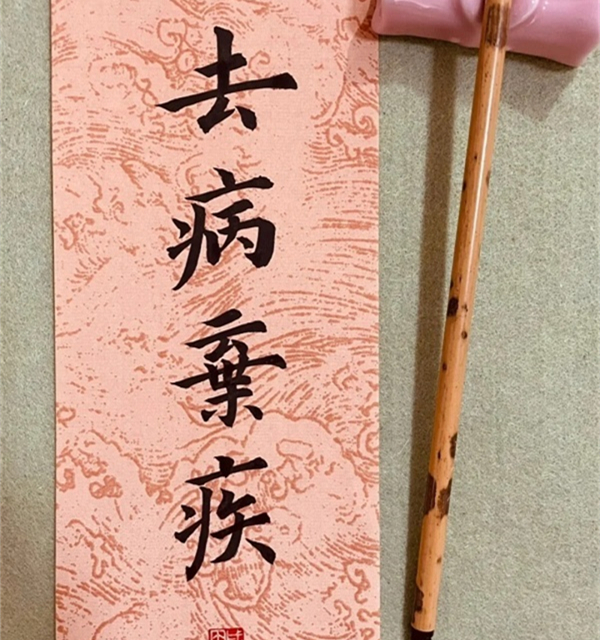 去病棄疾